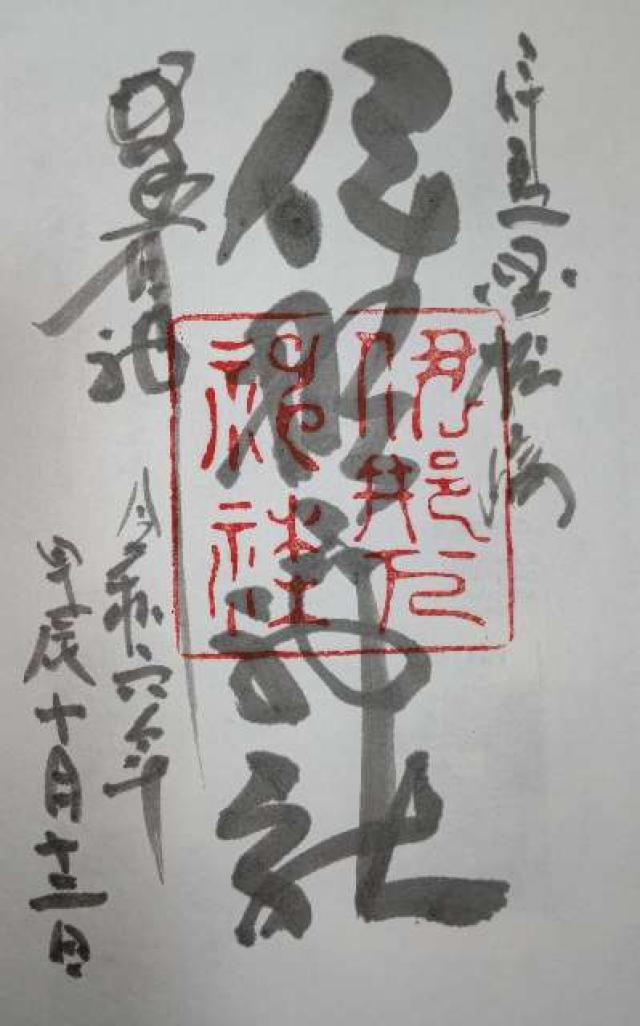 伊豆国松崎
伊那下神社
令和六年
甲辰十月十三日
伊那下
神社